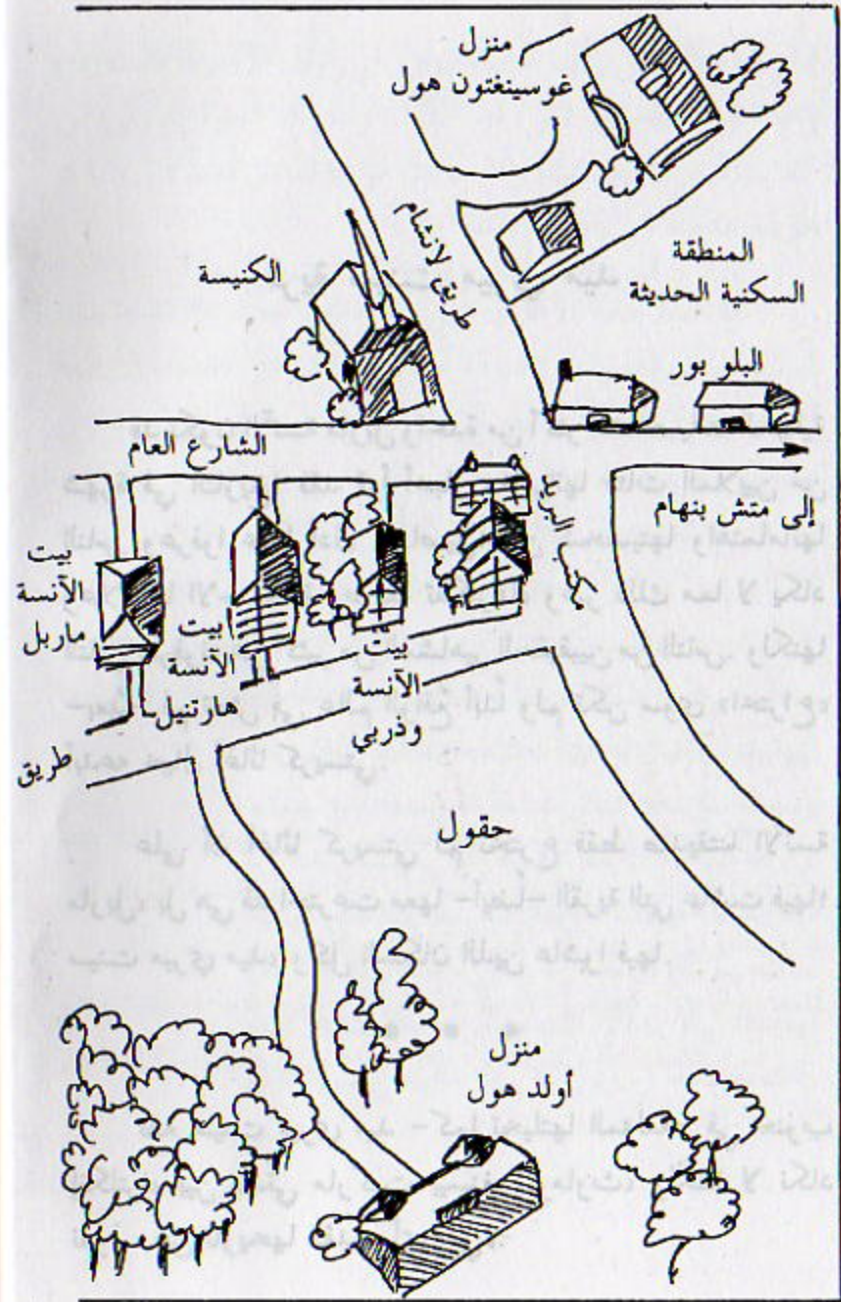 منزل
غوسينغتون هول
طريق لانشام
الكنيسة
المنطقة
السكنية الحديثة
البلو بور
الشارع العام
إلى متش بنهام
بيت
الآنسة
ماربل
بيت
الآنسة
هارتنيل
بيت
الآنسة
وذربي
طريق
حقول
منزل
أولد هول